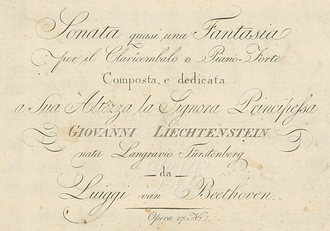 Sonata quasi una Fantasia
per il Clavicembalo o Piano-Forte
Composta, e dedicata
a Sua Altezza la Signora Principessa
GIOVANNI LIECHTENSTEIN
nata Langravio Fürstenberg
da
Luiggi van Beethoven
Opera 27. No.